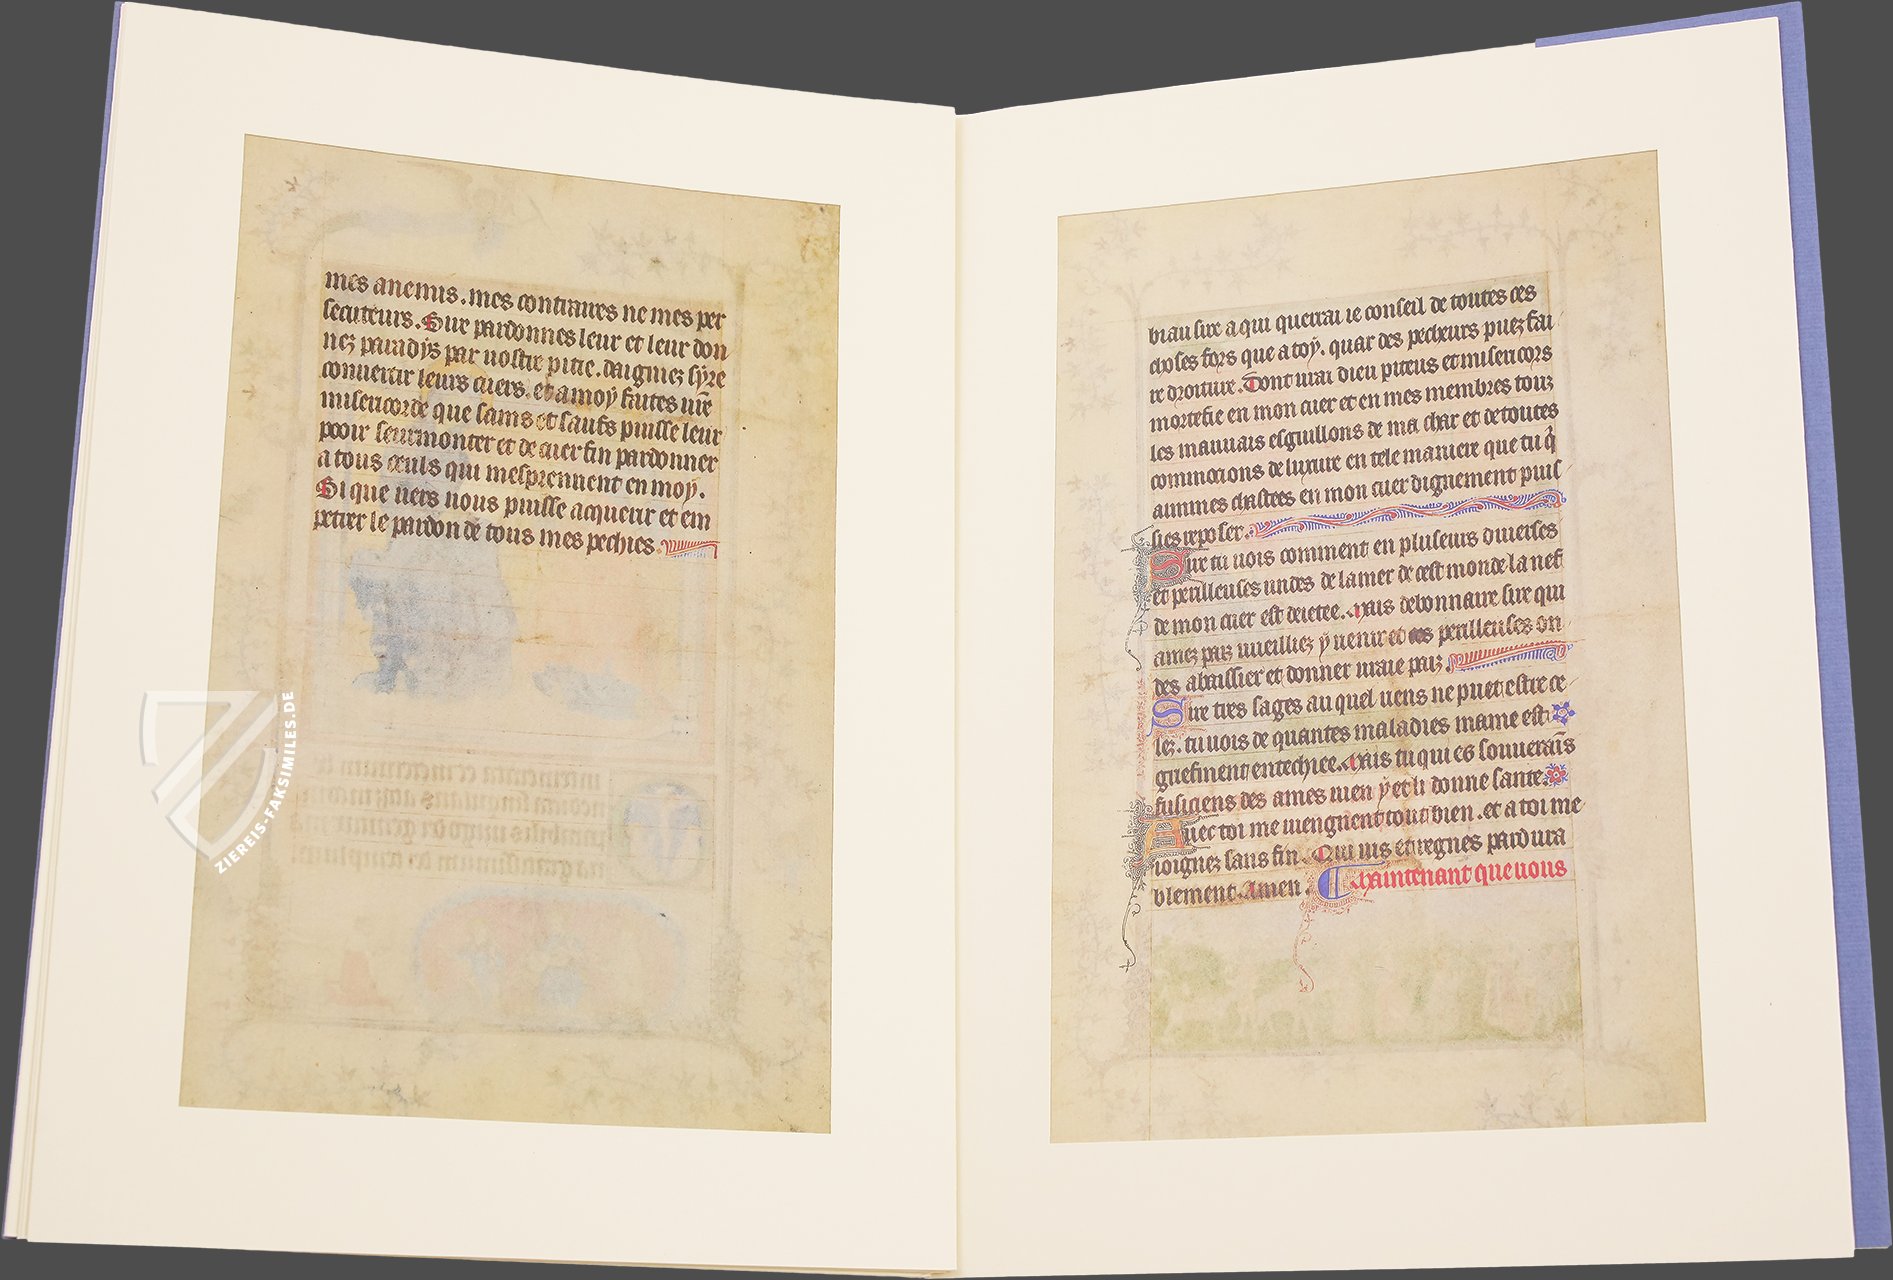 mes anemis. mes contraires ne mes per
secuteurs. Sire pardonnes leur et leur don
nez paradys par vostre pitie. daigniez syre
convertir leurs cuers. et a moy faites vr̄e
misericorde que sains et saufs puisse leur
pooir seurmonter et de cuer fin pardonner
a tous ceuls qui mesprennent en moy.
Si que vers vous puisse acquerir et em
petrer le pardon de tous mes pechies.
biau sire a qui querrai ie conseil de toutes ces
choses fors que a toy. quar des pecheurs puez fai
re droiture. Dont vrai dieu piteus et misericors
mortefie en mon cuer et en mes membres touz
les mauvais esguillons de ma char et de toutes
commocions de luxure en tele maniere que tu q̄
aimmes chastees en mon cuer dignement puis
sies reposer.
Sire tu vois comment en pluseurs diverses
et perilleuses undes de la mer de cest monde la nef
de mon cuer est deietee. Mais debonnaire sire qui
amez paiz vueilliez y venir et ces perilleuses on
des abaissier et donner vraie paiz
Sire tres sages au quel viens ne puet estre ce
lez. tu vois de quantes maladies mame est
griefment entechiee. Mais tu qui es souverains
fusiciens des ames vien y et li donne sante.
Avec toi me viengnent tout bien. et a toi me
ioignez sans fin. Qui vis et regnes pardura
blement. Amen. Maintenant que vous
ZIEREIS-FAKSIMILES.DE